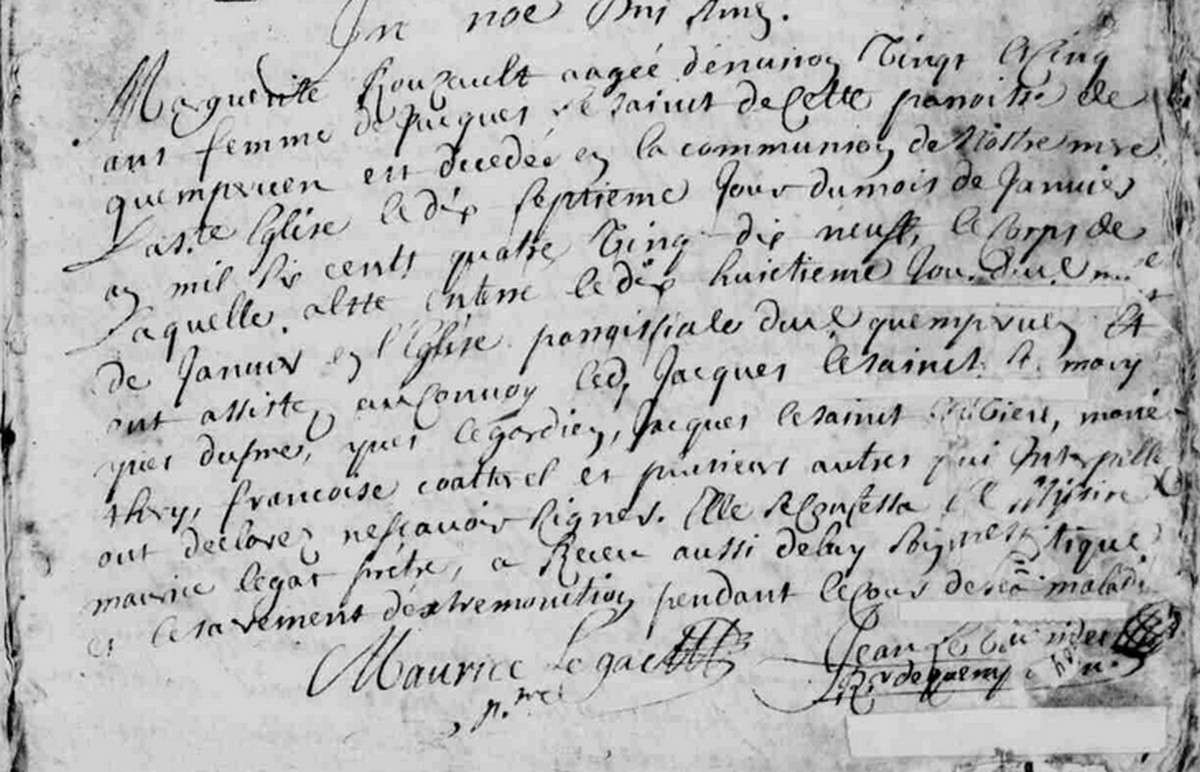 In noe Dni Amen.
Marguerite Rouzault aagée denuiron Vingt et Cinq
ans femme de Jacques le sainct de Cette paroisse de
quempruen est decedée en la communion de Nostre mere
La ste Eglise le dix septieme Jour du mois de Januier
an mil six cents quatre Vingt dix neuff, le Corps de
Laquelle a ette enterre le dix huictieme Jour dud m
de Januier en l'Eglise paroissiale dud quempruen Et
ont assisté au Conuoy led Jacques lesainct
yues legardien, Jacques lesainct
francoise coattrel et plusieurs autres qui Interpellé
ont declarez nescauoir signer. Elle se Confessa
maurice legac prétre, a Receu aussi de luy
et lesacrement dextremonction pendant lecours de sa maladi
Maurice Le gac
ptre
Jean Le
Rr de quemp